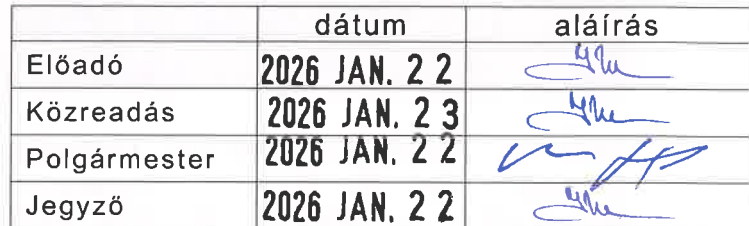 dátum aláírás
Előadó 2026 JAN. 22
Közreadás 2026 JAN. 23
Polgármester 2026 JAN. 22
Jegyző 2026 JAN. 22